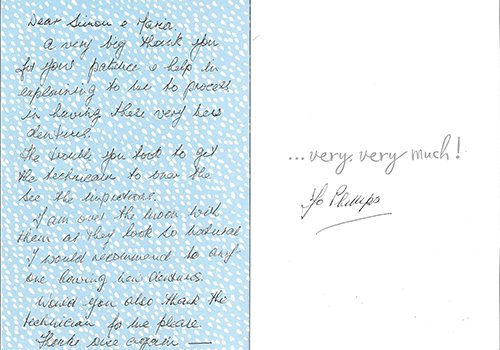 Dear Simon & Maria.
A very big thank you
for your patience & help in
explaining to me to process
in having these very new
dentures.
The trouble you took to get
the technician to over the
see the impressions.
I am over the moon with
them as they look so natural
I would recommend to any
one having new dentures.
Would you also thank the
technician for me please.
Thanks once again —
...very, very much!
Phillips